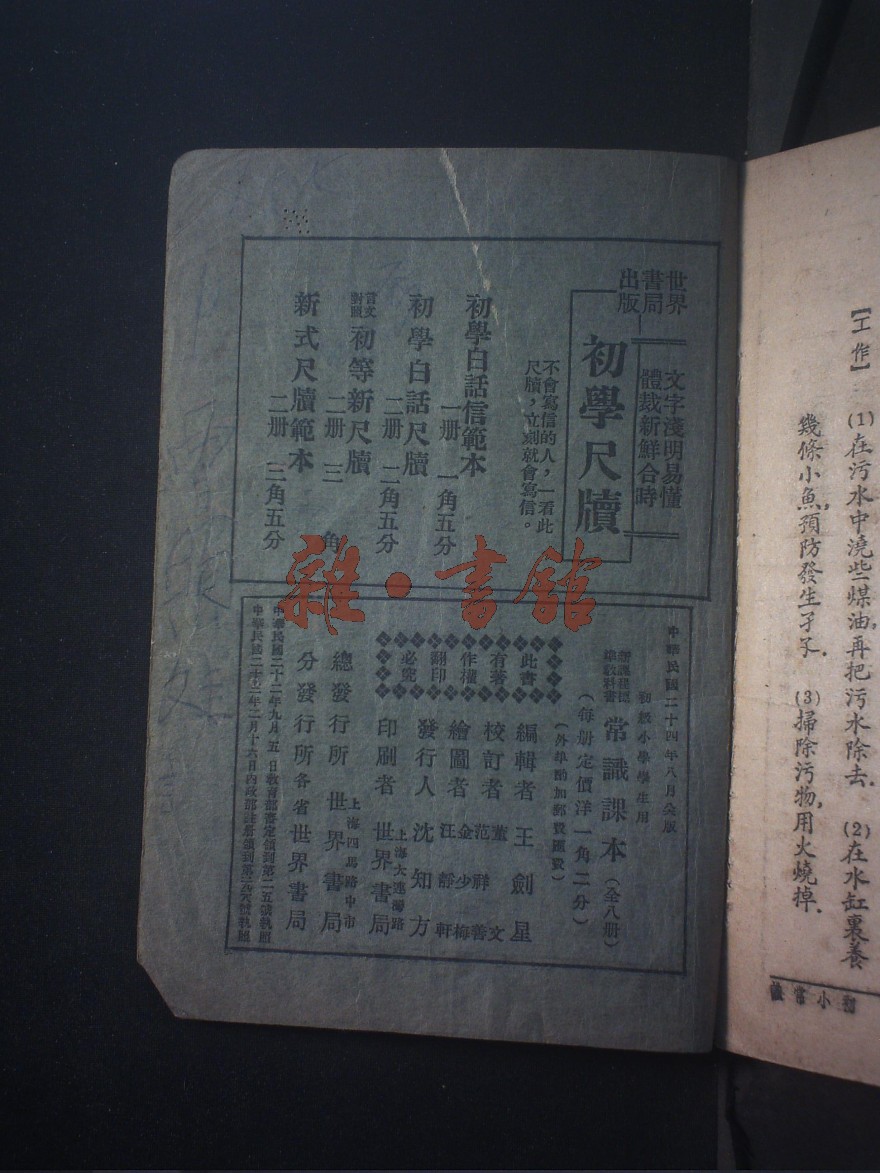 【工作】 (1)在污水中澆些煤油,再把污水除去. (2)在水缸裏養
幾條小魚,預防發生孑孓. (3)掃除污物,用火燒掉.
初小常識
世界
書局
出版
文字淺明易懂
體裁新鮮合時
初學尺牘
不會寫信的人,一看此
尺牘,立刻就會寫信。
初學白話信範本
一册 一角五分
初學白話尺牘
二册 二角五分
言文
對照 初等新尺牘
二册 三角
新式尺牘範本
二册 三角五分
雜·書館
中華民國二十四年八月 版
初級小學學生用
新課程標
準教科書 常識課本(全八册)
(每册定價洋一角二分)
(外埠酌加郵費匯費)
此書
有著
作權
翻印
必究
編輯者 王劍星
校訂者 董文
范祥善
繪圖者 金少梅
汪靜軒
發行人 沈知方
印刷者 上海大連灣路
世界書局
總發行所 上海四馬路中市
世界書局
分發行所 各省世界書局
中華民國二十二年九月五日教育部審定領到第二五號執照